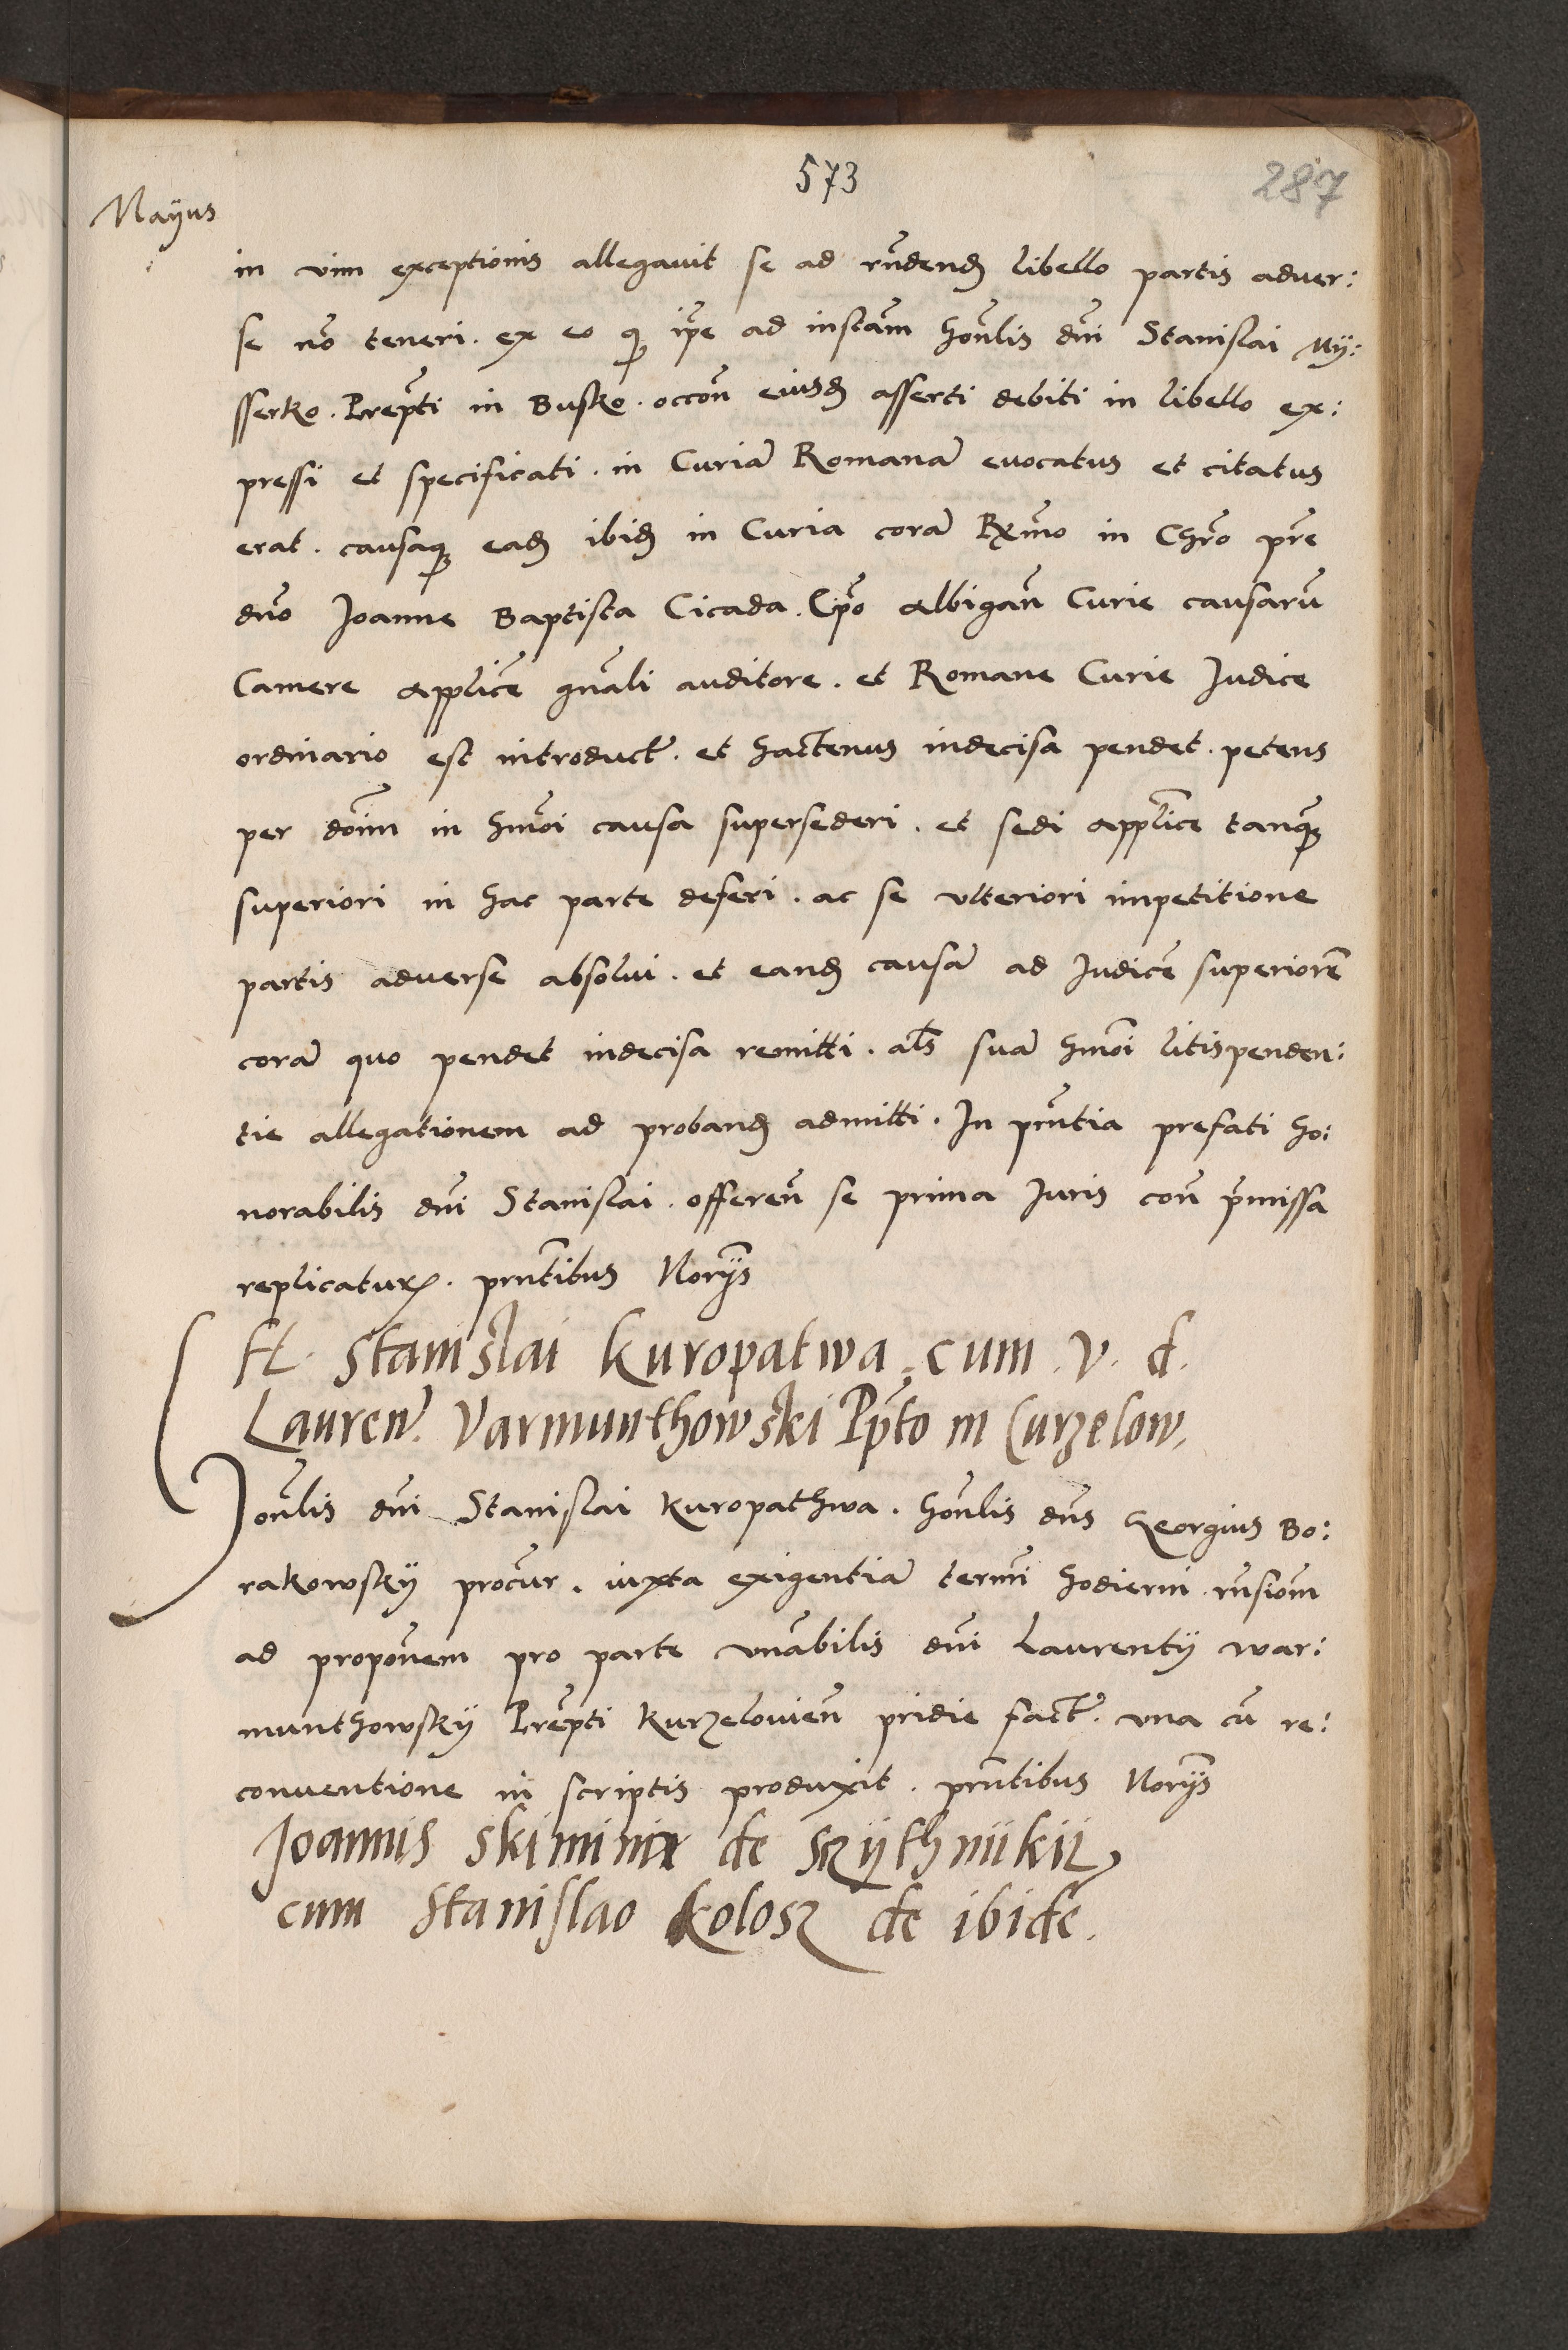 573
287
Mayus
in vim exceptionis allegauit se ad rñdendȝ libello partis aduer:
se nõ teneri. ex eo qȝ ip̃e ad instãm hoñlis dñi Stanislai My:
sserko. Prep̃ti in Busko. occoñ eiusdȝ asserti debiti in libello ex:
pressi et specificati. in Curiã Romanã euocatus et citatus
erat. causaqȝ eadȝ ibidȝ in Curia corã Rx̃mo in Chr̃o pr̃e
dño Joanne Baptista Cicada. Ep̃o Albigañ Curie causarũ
Camere Applicẽ gñali auditore. et Romane Curie Judice
ordinario est introduct̃. et hactenus indecisa pendet. petens
per doĩm in hmõi causa supersederi. et sedi applicẽ tanqȝ
superiori in hac parte deferi. ac se vlteriori impetitione
partis aduerse absolui. et eandȝ causã ad Judicẽ superiorẽ
corã quo pendet indecisa remitti. als̃ suã hmõi litispenden:
tie allegationem ad probandȝ admitti. In pñtia prefati ho:
norabilis dñi Stanislai. offereñ se prima Juris coñ p̃missa
replicatur. pñtibus Norỹs
H. Stanislai Kuropatwa. cum. v. d.
Laureñ. Varmunthowski Pp̃to in Curzelow.
Hoñlis dñi Stanislai Kuropathwa. hoñlis dñs Georgius Bo:
rakowsky procũr. iuxta exigentiã termĩ hodierni. rñsionẽ
ad propoñem pro parte vnãbilis dñi Laurenty War:
munthowsky Prep̃ti Kurzelouieñ pridie fact̃. vna cũ re:
conuentione in scriptis produxit. pñtibus Norỹs
Joannis Skiminix de Szythnikij
cum Stanislao Kolosz de ibidẽ.